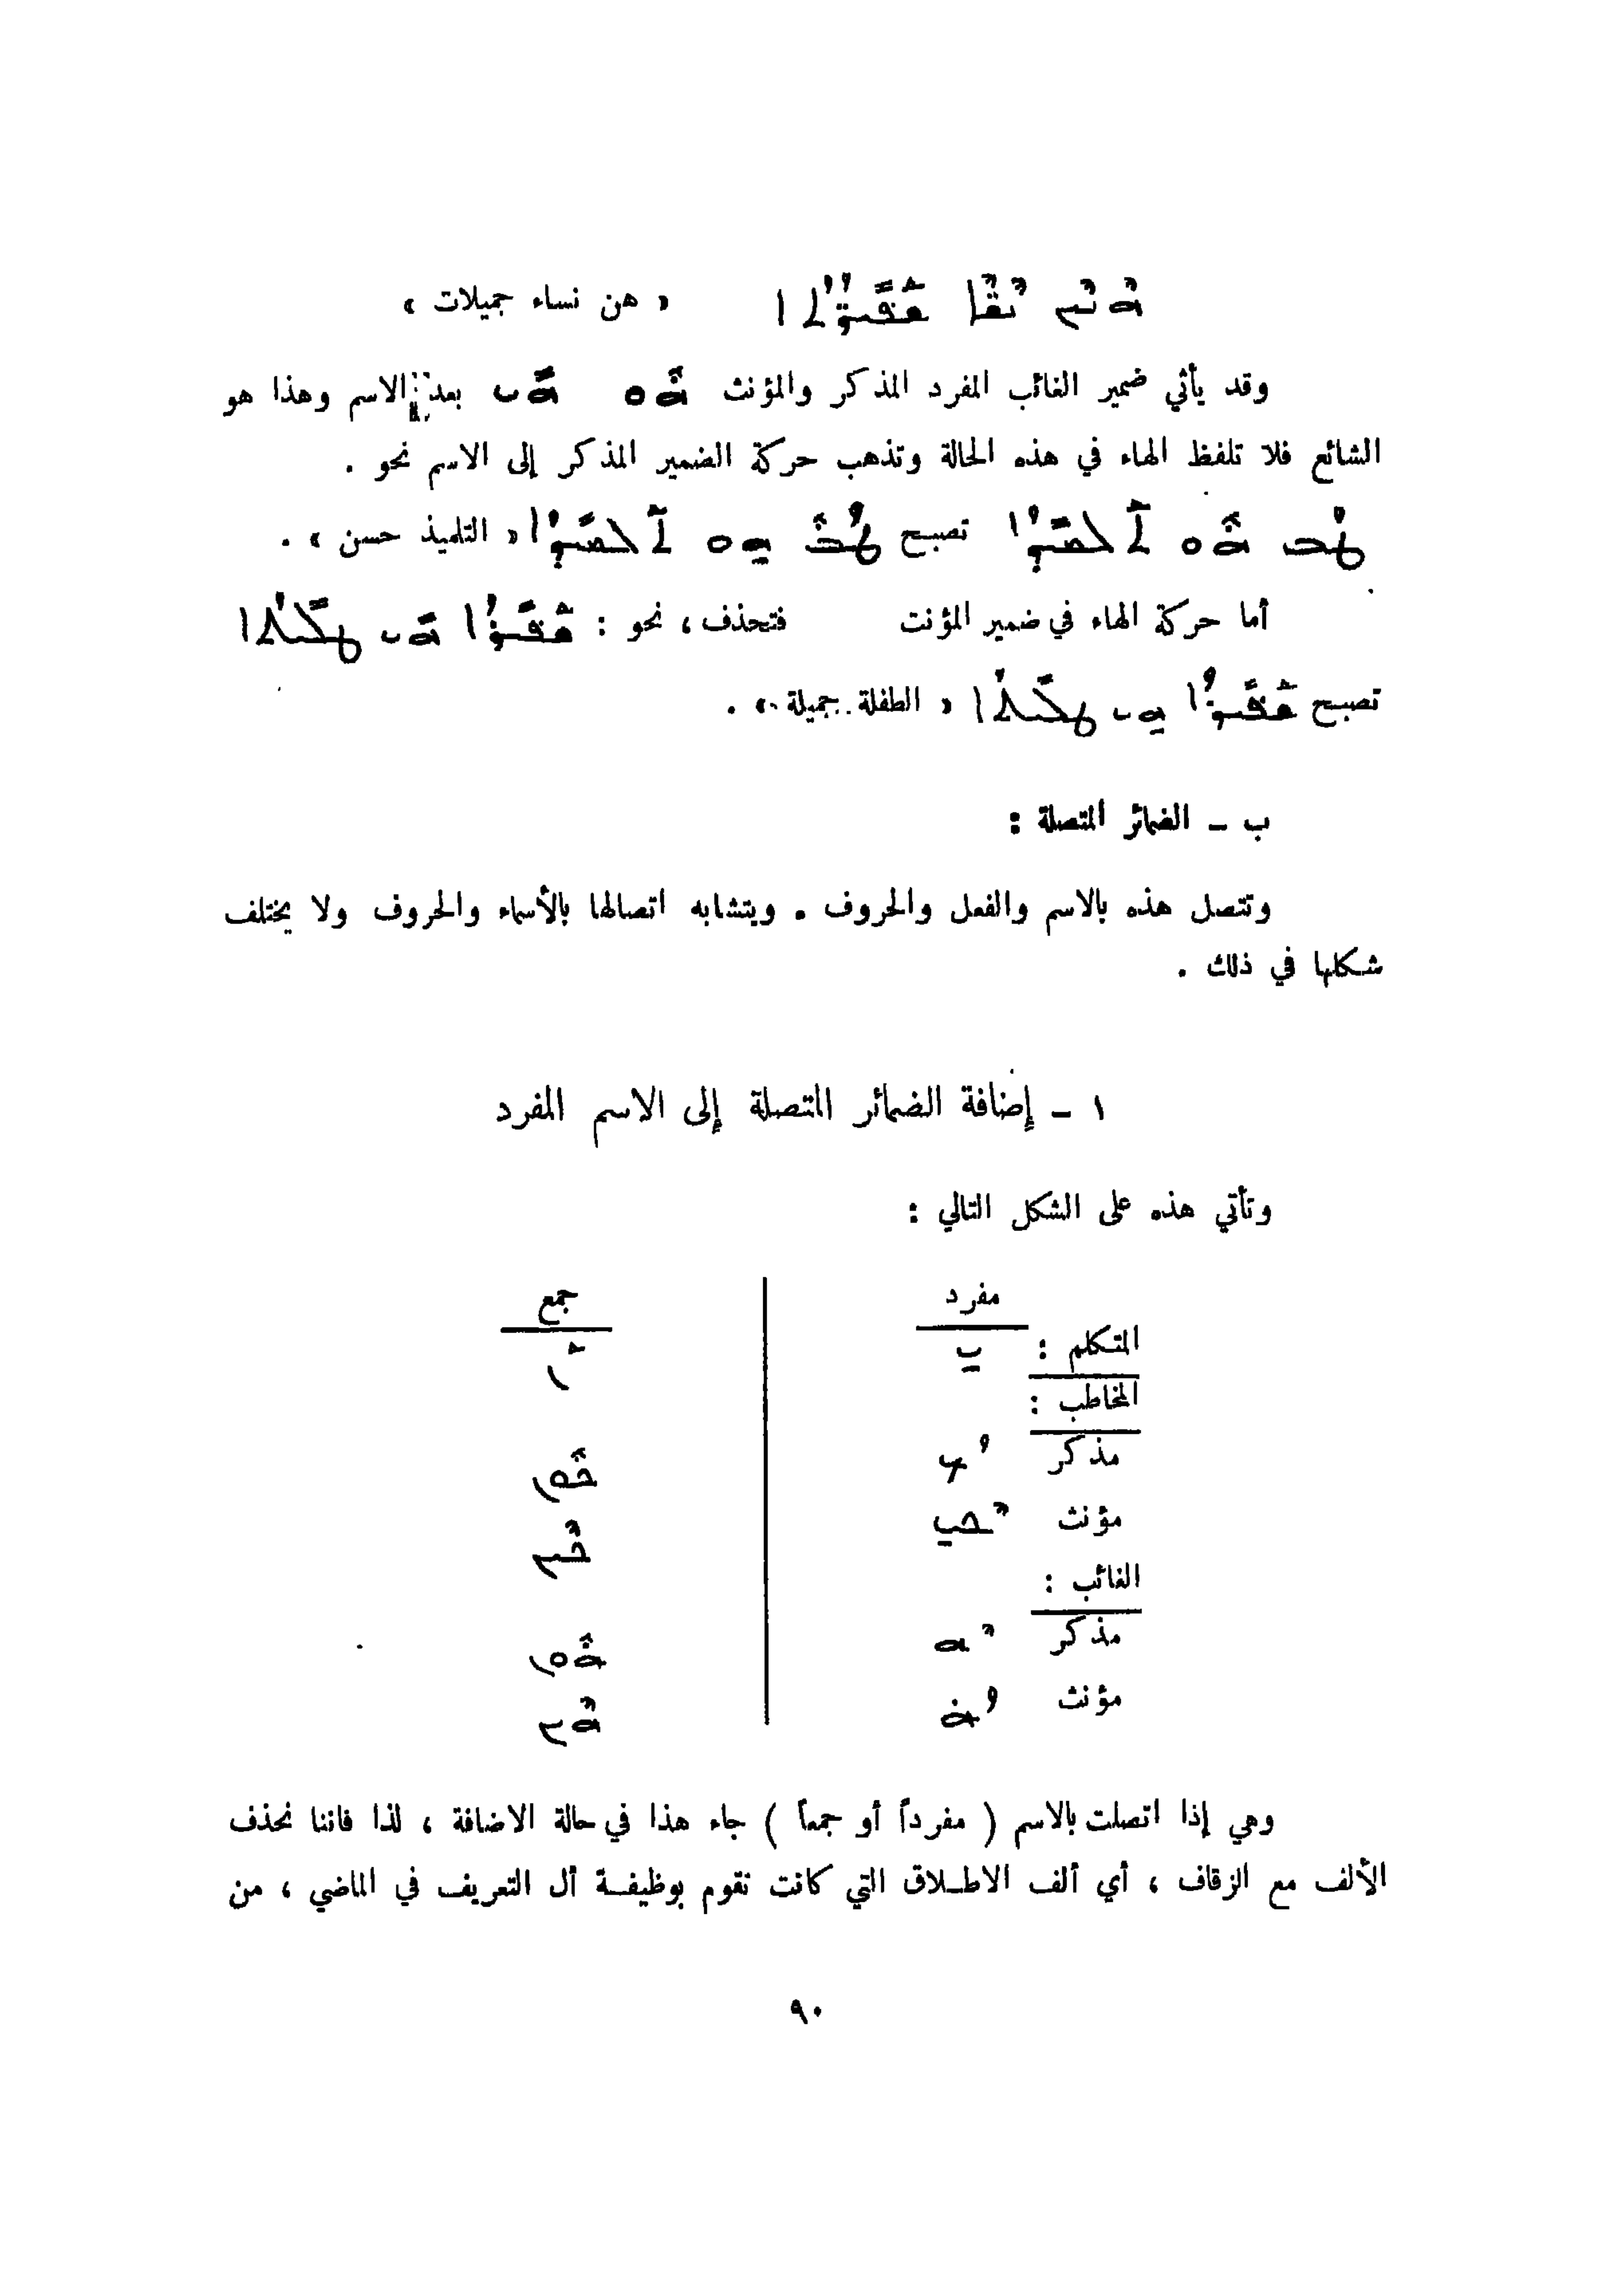 ܗܶܢܶܝܢ ܢܶܫܶܐ ܫܰܦܺܝܪ̈ܳܬܳܐ « هن نساء جميلات »
وقد يأتي ضمير الغائب المفرد المذكر والمؤنث ܗܽܘ ܗܺܝ بعد الاسم وهذا هو
الشائع فلا تلفظ الهاء في هذه الحالة وتذهب حركة الضمير المذكر إلى الاسم نحو .
ܛܳܒ ܗܽܘ ܬܰܠܡܺܝܕܳܐ تصبح ܛܳܒܽ ܗ̱ܘ ܬܰܠܡܺܝܕܳܐ « التلميذ حسن » .
أما حركة الهاء في ضمير المؤنث فتحذف ، نحو : ܫܰܦܺܝܪܳܐ ܗܺܝ ܛܠܺܝܬܳܐ
تصبح ܫܰܦܺܝܪܳܐ ܗ̱ܝ ܛܠܺܝܬܳܐ « الطفلة جميلة » .
ب - الضمائر المتصلة :
وتتصل هذه بالاسم والفعل والحروف . ويتشابه اتصالها بالأسماء والحروف ولا يختلف
شكلها في ذلك .
١ - إضافة الضمائر المتصلة إلى الاسم المفرد
وتأتي هذه على الشكل التالي :
مفرد جمع
المتكلم : ܝ̱ ܰܢ
المخاطب :
مذكر ܳܟ ܟܽܘܢ
مؤنث ܶܟܝ̱ ܟܶܝܢ
الغائب :
مذكر ܶܗ ܗܽܘܢ
مؤنث ܳܗ̇ ܗܶܝܢ
وهي إذا اتصلت بالاسم ( مفرداً أو جمعاً ) جاء هذا في حالة الاضافة ، لذا فاننا نحذف
الألف مع الزقاف ، أي ألف الاطلاق التي كانت تقوم بوظيفة أل التعريف في الماضي ، من
٩٠